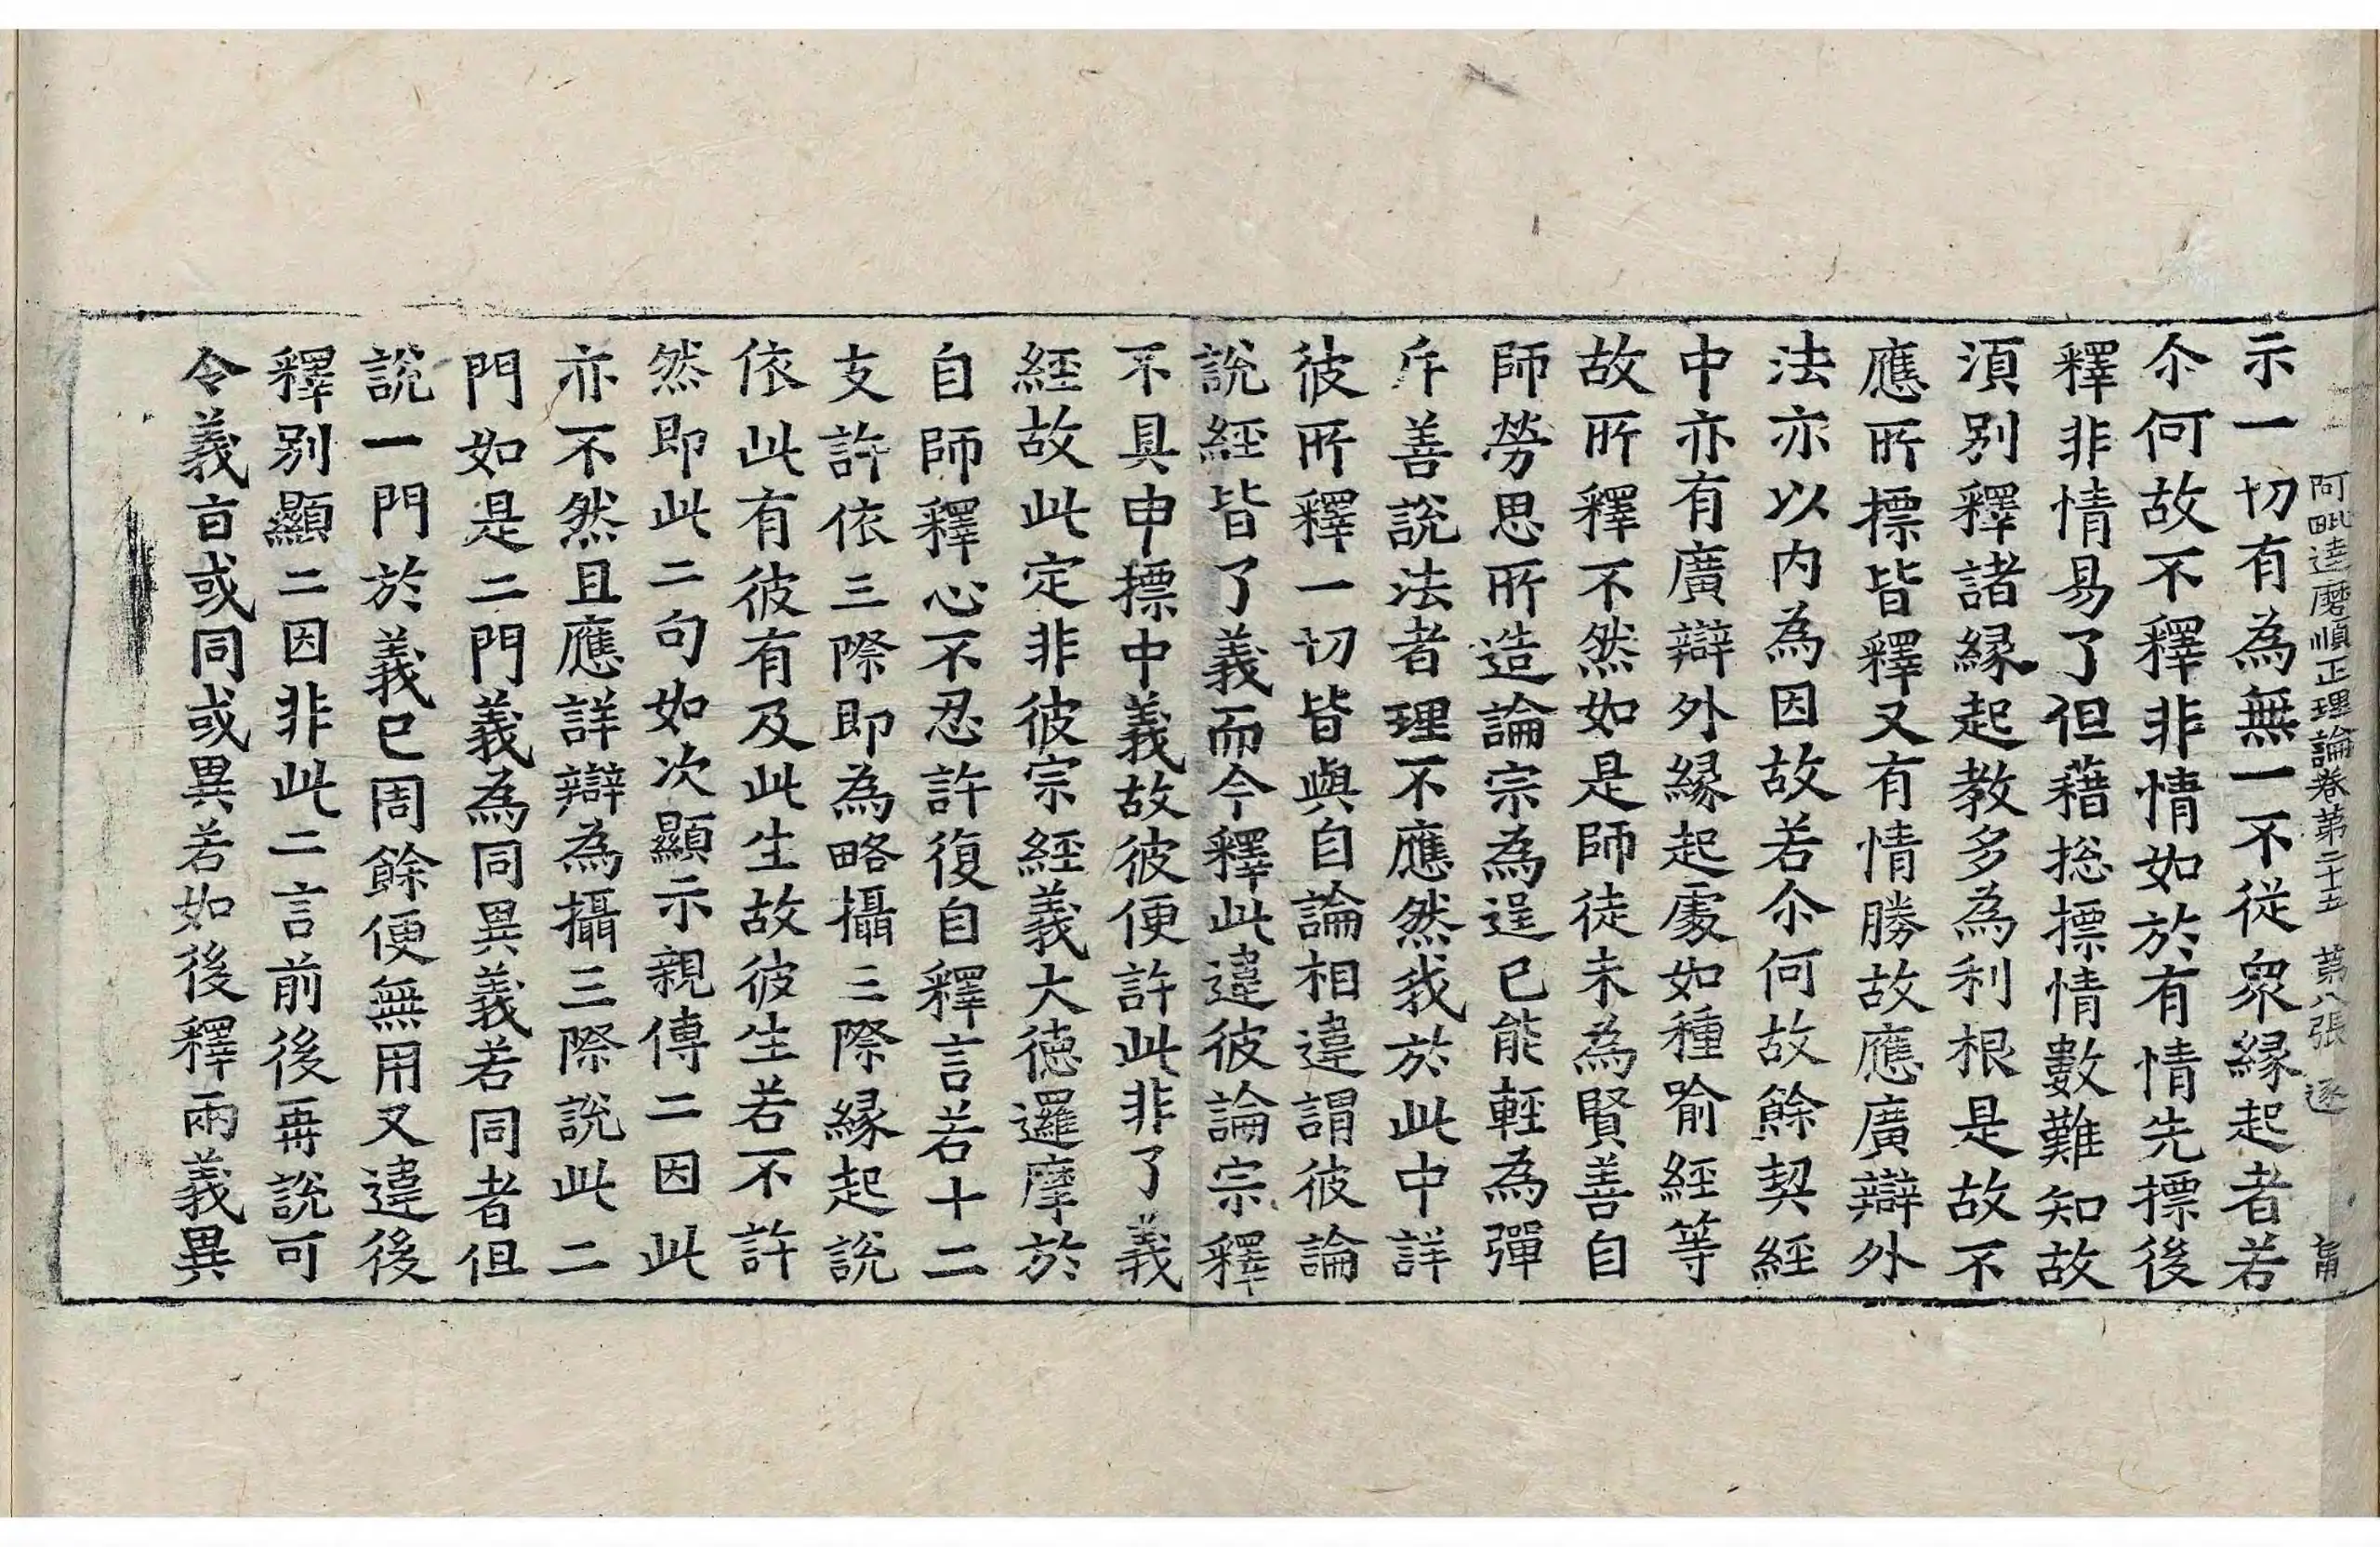 阿毗達磨順正理論卷第二十五 第八張 逐
示一切有為無一不從衆緣起者若
尒何故不釋非情如於有情先摽後
釋非情易了但藉捴摽情數難知故
湏別釋諸緣起教多為利根是故不
應所摽皆釋又有情勝故應廣辯外
法亦以内為因故若尒何故餘契經
中亦有廣辯外緣起處如種喻經等
故所釋不然如是師徒未為賢善自
師勞思所造論宗為逞已能輕為彈
斥善說法者理不應然我於此中詳
彼所釋一切皆與自論相違謂彼論
說經皆了義而今釋此違彼論宗釋
不具申摽中義故彼便許此非了義
經故此定非彼宗經義大德邏摩於
自師釋心不忍許復自釋言若十二
支許依三際即為略攝三際緣起說
依此有彼有及此生故彼生若不許
然即此二句如次顯示親傳二因此
亦不然且應詳辯為攝三際說此二
門如是二門義為同異義若同者但
說一門於義已周餘便無用又違後
釋別顯二因非此二言前後再說可
令義盲或同或異若如後釋兩義異